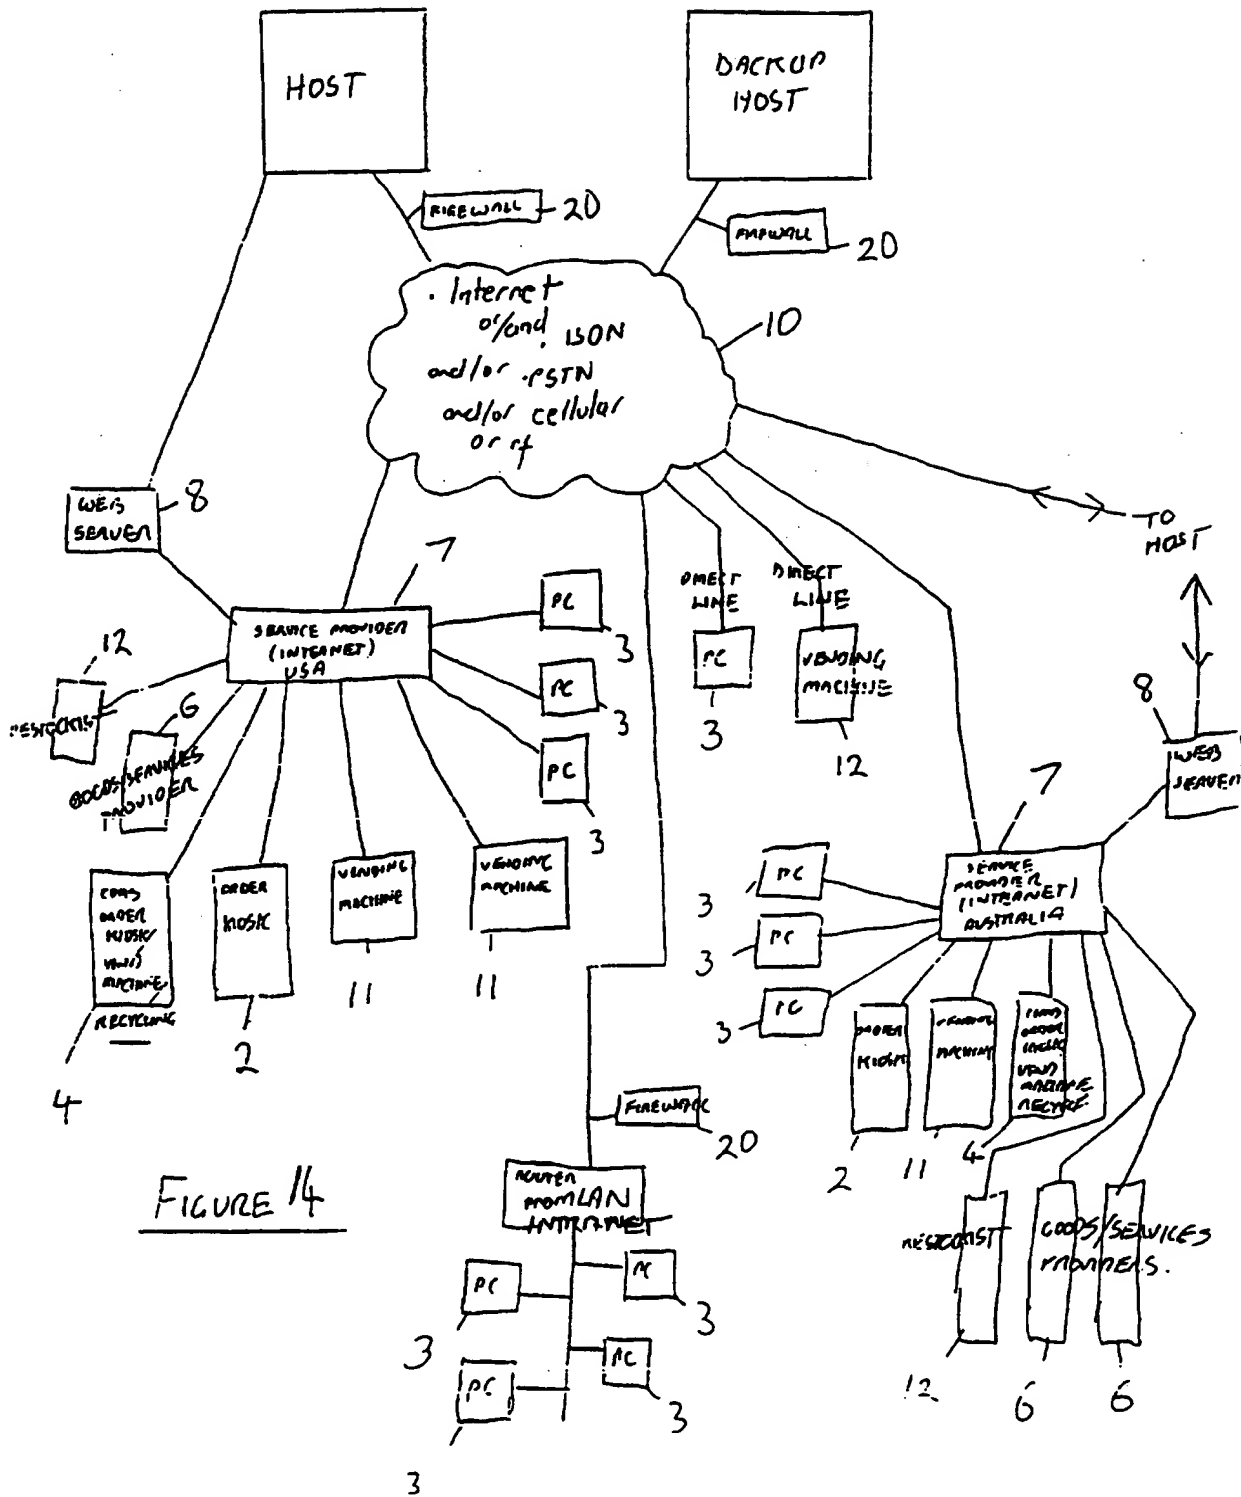 HOST
BACKUP
HOST
FIREWALL
20
FIREWALL
20
. Internet
or/and
. ISDN
and/or . PSTN
and/or cellular
or rf
10
TO
HOST
WEB
SERVER
8
7
SERVICE PROVIDER
(INTERNET)
USA
PC
3
PC
3
PC
3
DIRECT
LINE
PC
3
DIRECT
LINE
VENDING
MACHINE
12
8
WEB
SERVER
12
RESTOCKIST
6
GOODS/SERVICES
PROVIDER
ORDER
KIOSK/
MACHINE
RECYCLING
4
ORDER
KIOSK
2
VENDING
MACHINE
11
VENDING
MACHINE
11
7
SERVICE
PROVIDER
(INTERNET)
AUSTRALIA
PC
3
PC
3
PC
3
ORDER
KIOSK
2
VENDING
MACHINE
11
ORDER
KIOSK
VEND
MACHINE
RECYCLE
4
RESTOCKIST
12
GOODS/SERVICES
PROVIDERS.
6
6
FIREWALL
20
ROUTER
FROM LAN
INTRANET
PC
3
PC
3
PC
3
PC
3
FIGURE 14